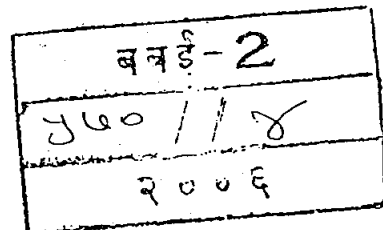 बबई-2
५७० // ४
२००६